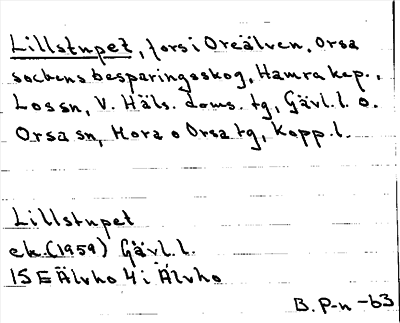 Lillstupet, fors i Oreälven, Orsa
sockens besparingsskog, Hamra kap.,
Los sn, V. Häls. doms. tg, Gävl. l. o.
Orsa sn, Mora o Orsa tg, Kopp. l.
Lillstupet
ek. (1959) Gävl. l.
15 E Älvho 4 i Älvho
B. P-n -63